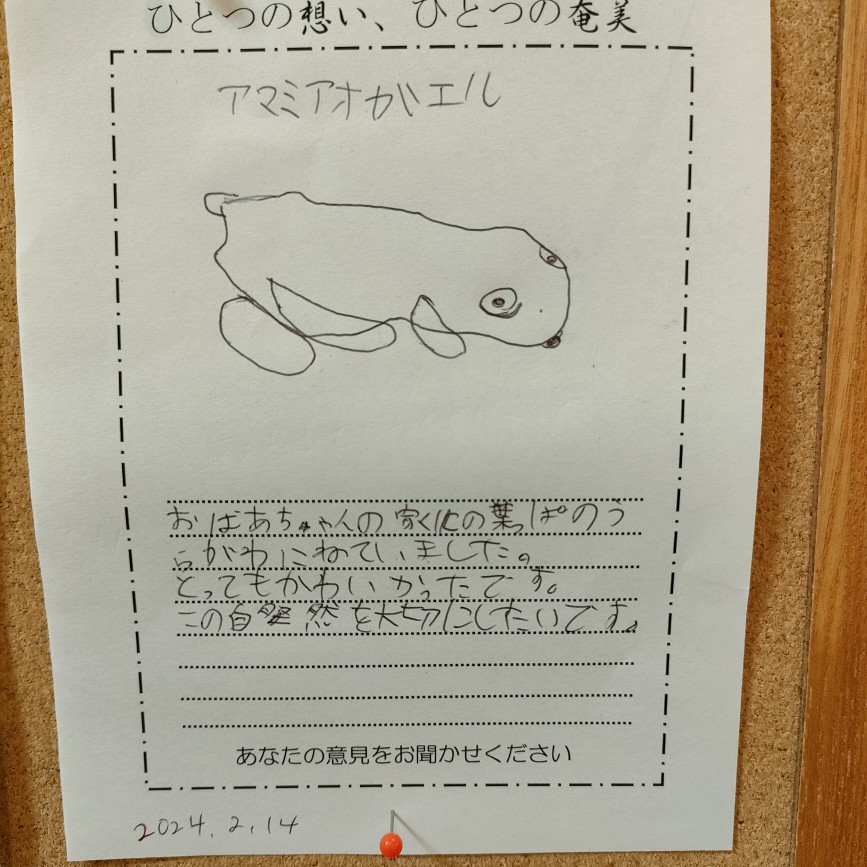 ひとつの想い、ひとつの奄美
アマミアオガエル
おばあちゃんの家の葉っぱのう
らがわにねていました。
とってもかわいかったです。
この自然を大切にしたいです。
あなたの意見をお聞かせください
2024.2.14